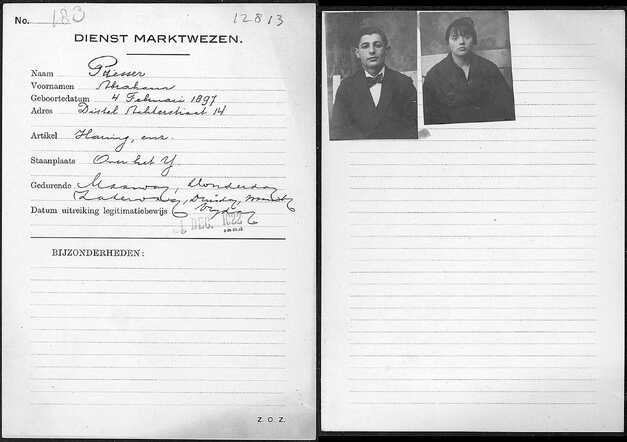 No. 183 12813
DIENST MARKTWEZEN.
Naam Presser
Voornamen Abraham
Geboortedatum 4 Februari 1897
Adres Distel Achterstraat 14
Artikel Haring, enz.
Staanplaats Over het Y.
Gedurende Maandag, Donderdag
Zaterdag, Dinsdag, Woensdag
Datum uitreiking legitimatiebewijs Vrijdag
1 DEC. 1922
BIJZONDERHEDEN:
Z.O.Z.